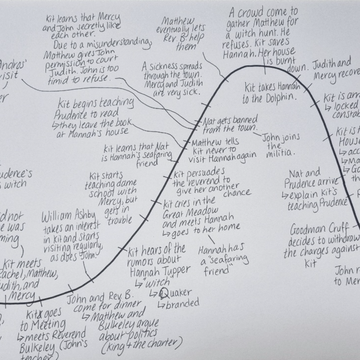 Kit learns that Mercy
and John secretly like
each other.
Due to a misunderstanding,
Matthew gives John
permission to court
Judith. John is too
timid to refuse.
Matthew
eventually lets
Rev. B help
them
A crowd come to
gather Matthew for
a witch hunt. He
refuses. Kit saves
Hannah. Her house
is burnt
down.
Judith and
Mercy recove
A sickness spreads
through the town.
Mercy and Judith
are very sick.
Kit takes Hannah
to the Dolphin.
Kit is arr
↳ locked
consta
Kit begins teaching
Prudence to read
↳ they leave the book
at Hannah's house
Nat gets banned
from the town.
Matthew tells
Kit never to
visit Hannah again
John joins
the
militia.
Kit is
House
↳ acc
Kit learns that Nat
is Hannah's seafaring
friend
Kit starts
teaching dame
school with
Mercy, but
gets in
trouble
Kit persuades
the reverend to
give her another
chance
Kit cries in the
Great Meadow
and meets Hannah
↳ goes to her home
Hannah has
a "seafaring
friend"
Nat and
Prudence arrive
↳ explain Kit's
teaching Prudence
Goodman Cruff
decides to withdraw
the charges against
Kit
John re
to Mer
Andros'
visit
udence's
s witch
William Ashby
takes an interest
in Kit and starts
visiting regularly,
as does John
Kit hears of the
rumors about
Hannah Tupper
↳ witch
↳ Quaker
↳ branded
Kit meets
Rachel, Matthew,
udith, and
Mercy
Kit goes
to Meeting
↳ meets Reverend
Bulkeley (John's
teacher)
John and Rev B.
come for dinner
↳ Matthew and
Bulkeley argue
about politics
(king + the charter)